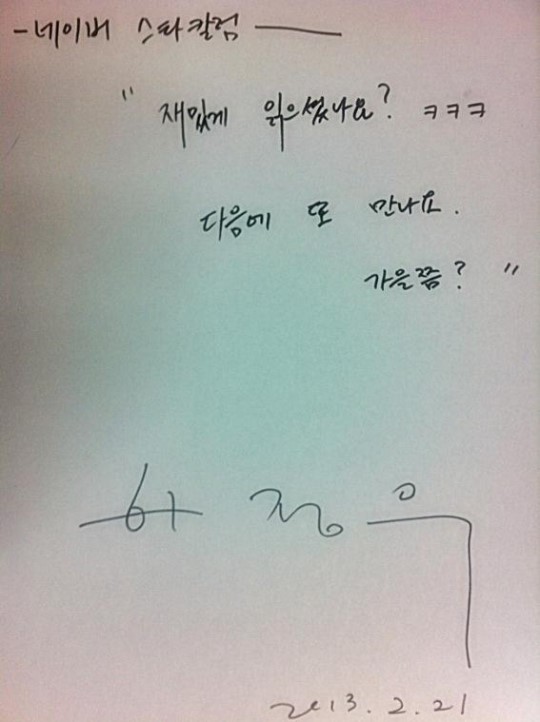 - 네이버 스타칼럼 —
" 재밌게 읽으셨나요? ㅋㅋㅋ
다음에 또 만나요.
가을쯤? "
하정우
2013. 2. 21